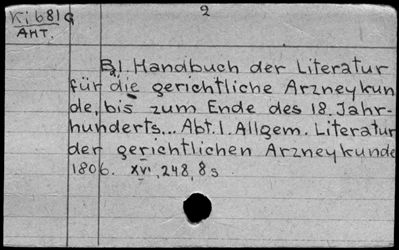 Ki681a 2
Ант.
Bd. 1. Handbuch der Literatur
für die gerichtliche Arzneykun
de, bis zum Ende des 18. Jahr-
hunderts... Abt. 1. Allgem. Literatur
der gerichtlichen Arzneykunde
1806. XVI, 248, 8 s